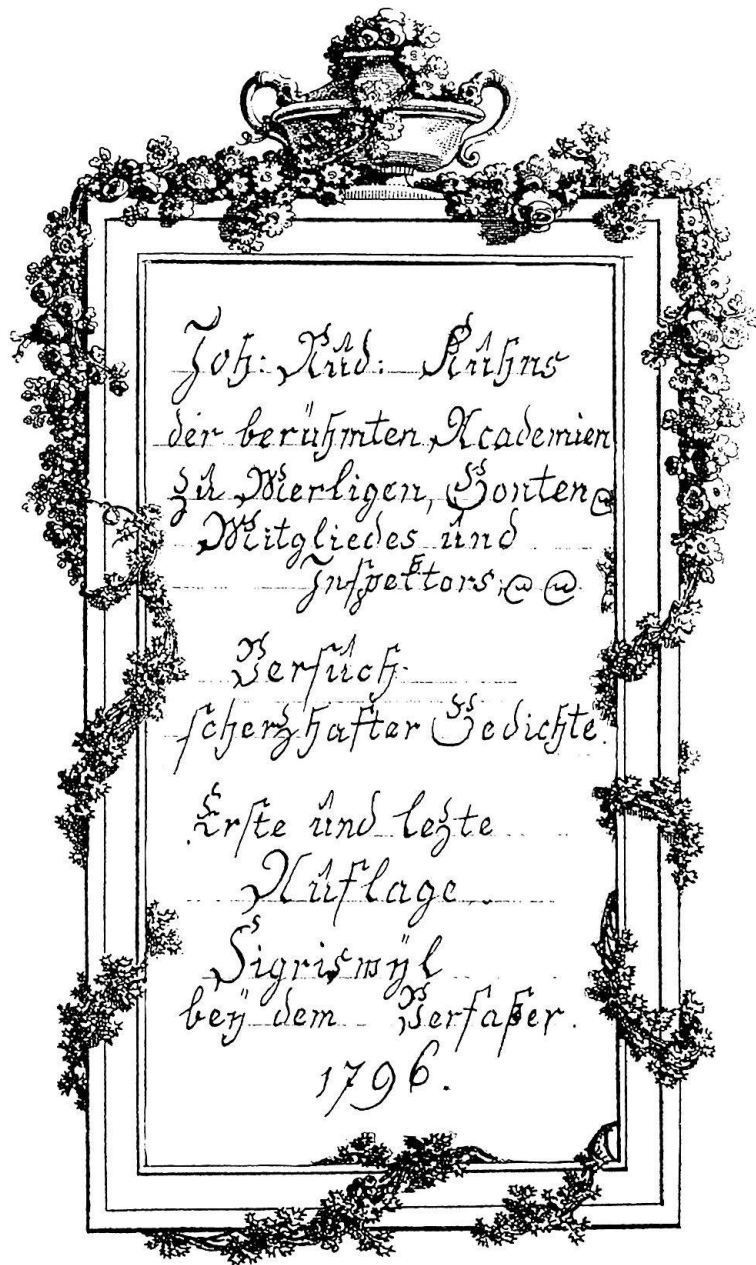 Joh: Rud: Kuhns
der berühmten Academien
zu Merligen, Gonten @
Mitgliedes und
Inspektors, @ @
Versuch
scherzhafter Gedichte.
Erste und lezte
Auflage.
Sigriswÿl
beÿ dem Verfaßer.
1796.